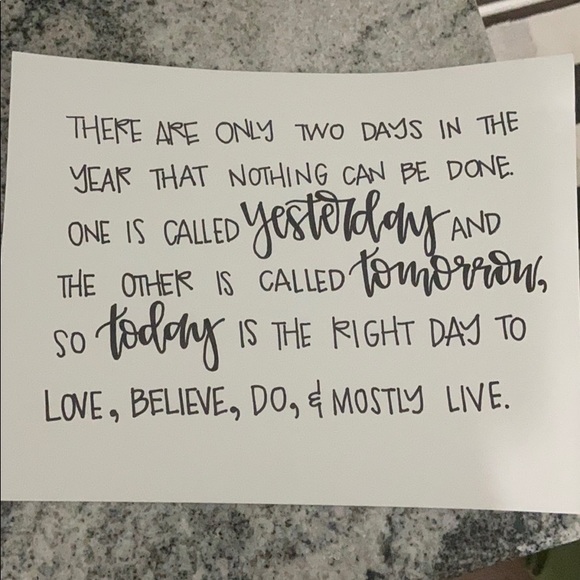 THERE ARE ONLY TWO DAYS IN THE
YEAR THAT NOTHING CAN BE DONE.
ONE IS CALLED yesterday AND
THE OTHER IS CALLED tomorrow,
SO today IS THE RIGHT DAY TO
LOVE, BELIEVE, DO, & MOSTLY LIVE.